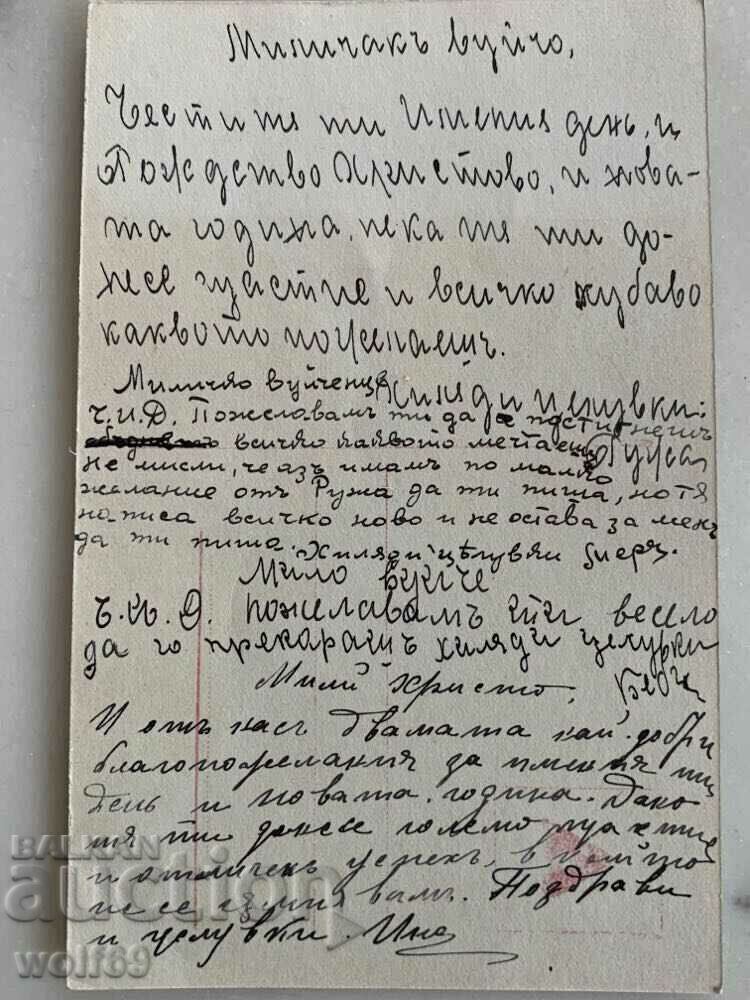 Миличакъ вуйчо,
Честитя ти Имения день, и
Рождество Христово, и нова-
та година, нека тя ти до-
несе щастие и всичко хубаво
каквото пожелаешъ.
Миличко вуйченце
Хиляди целувки:
Ч.И.Д. Пожелавамъ ти да постигнешъ
всичко каквото мечтаешъ
Ружа
не мисли, че азъ имамъ по малко
желание отъ Ружа да ти пиша, но тя
написа всичко ново и не остава за менъ
да ти пиша. Хиляди цѣлувки
Мило вуйче
Ч.И.Д. пожелавамъ ти весело
да го прекарашъ хиляди целувки
Мили Христо,
И отъ насъ двамата най-добри
благопожелания за имения ти
день и новата година. Дано
тя ти донесе големо щастие
и отличенъ успехъ, в който
не се съмнявамъ. Поздрави
и целувки.
BALKAN
auction
wolf69